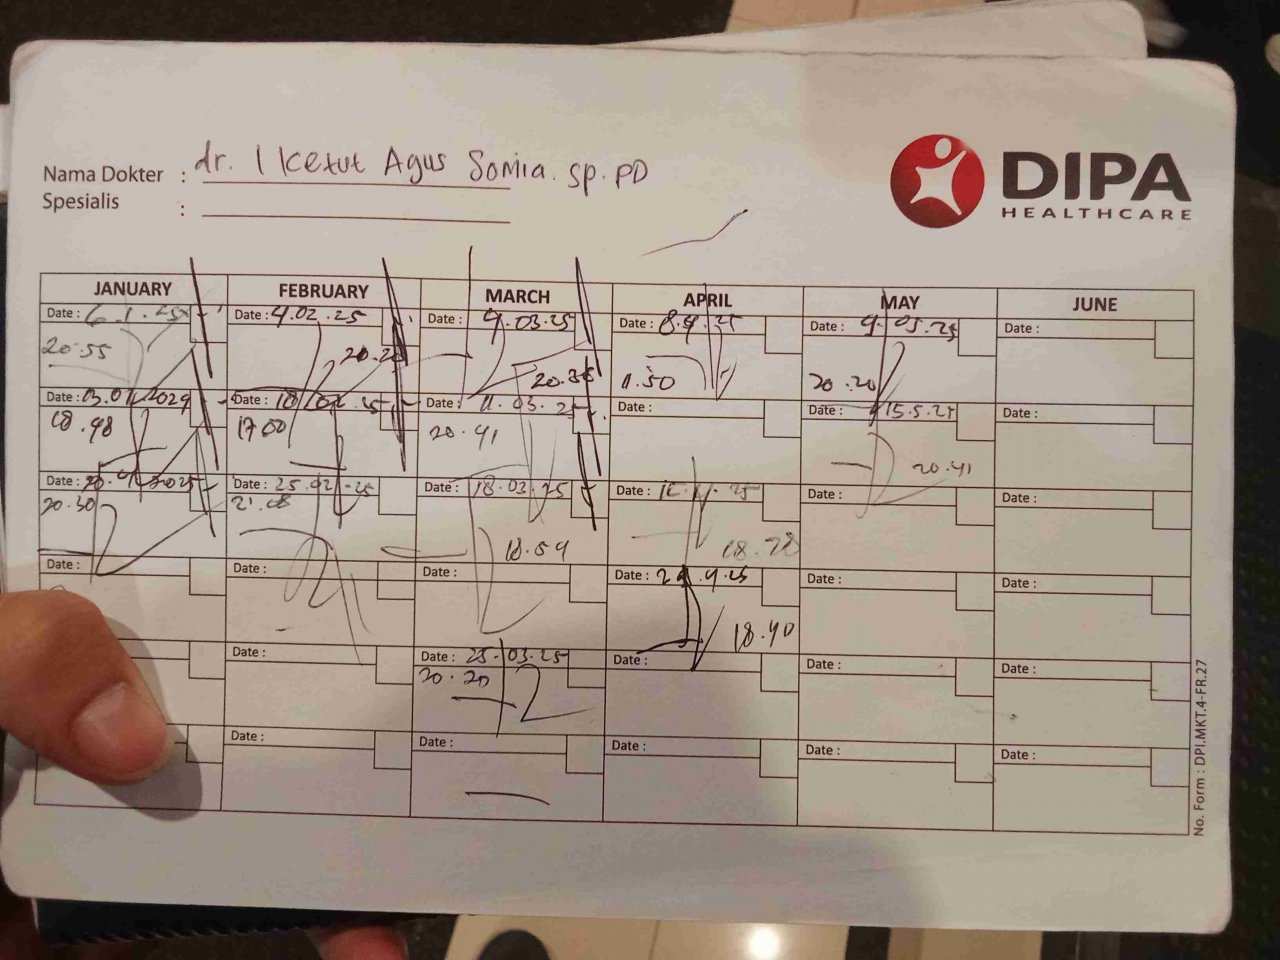 Nama Dokter : dr. I Ketut Agus Somia. Sp. PD
Spesialis :
DIPA
HEALTHCARE
JANUARY FEBRUARY MARCH APRIL MAY JUNE
Date : 6.1.25 Date : 4.02.25 Date : 4.03.25 Date : 8.4.25 Date : 9.05.25 Date :
20.55 20.20 11.50 20.20
Date : Date : Date : 11.03.25 Date : Date : 15.5.25 Date :
18.48 17.00 20.41 20.41
Date : Date : 25.02.25 Date : 18.03.25 Date : Date : Date :
20.30 21.08 18.59
Date : Date : Date : Date : Date : Date :
18.40
Date : Date : 25.03.25 Date : Date : Date :
20.20
Date : Date : Date : Date : Date :
No. Form : DPI.MKT.4-FR.27